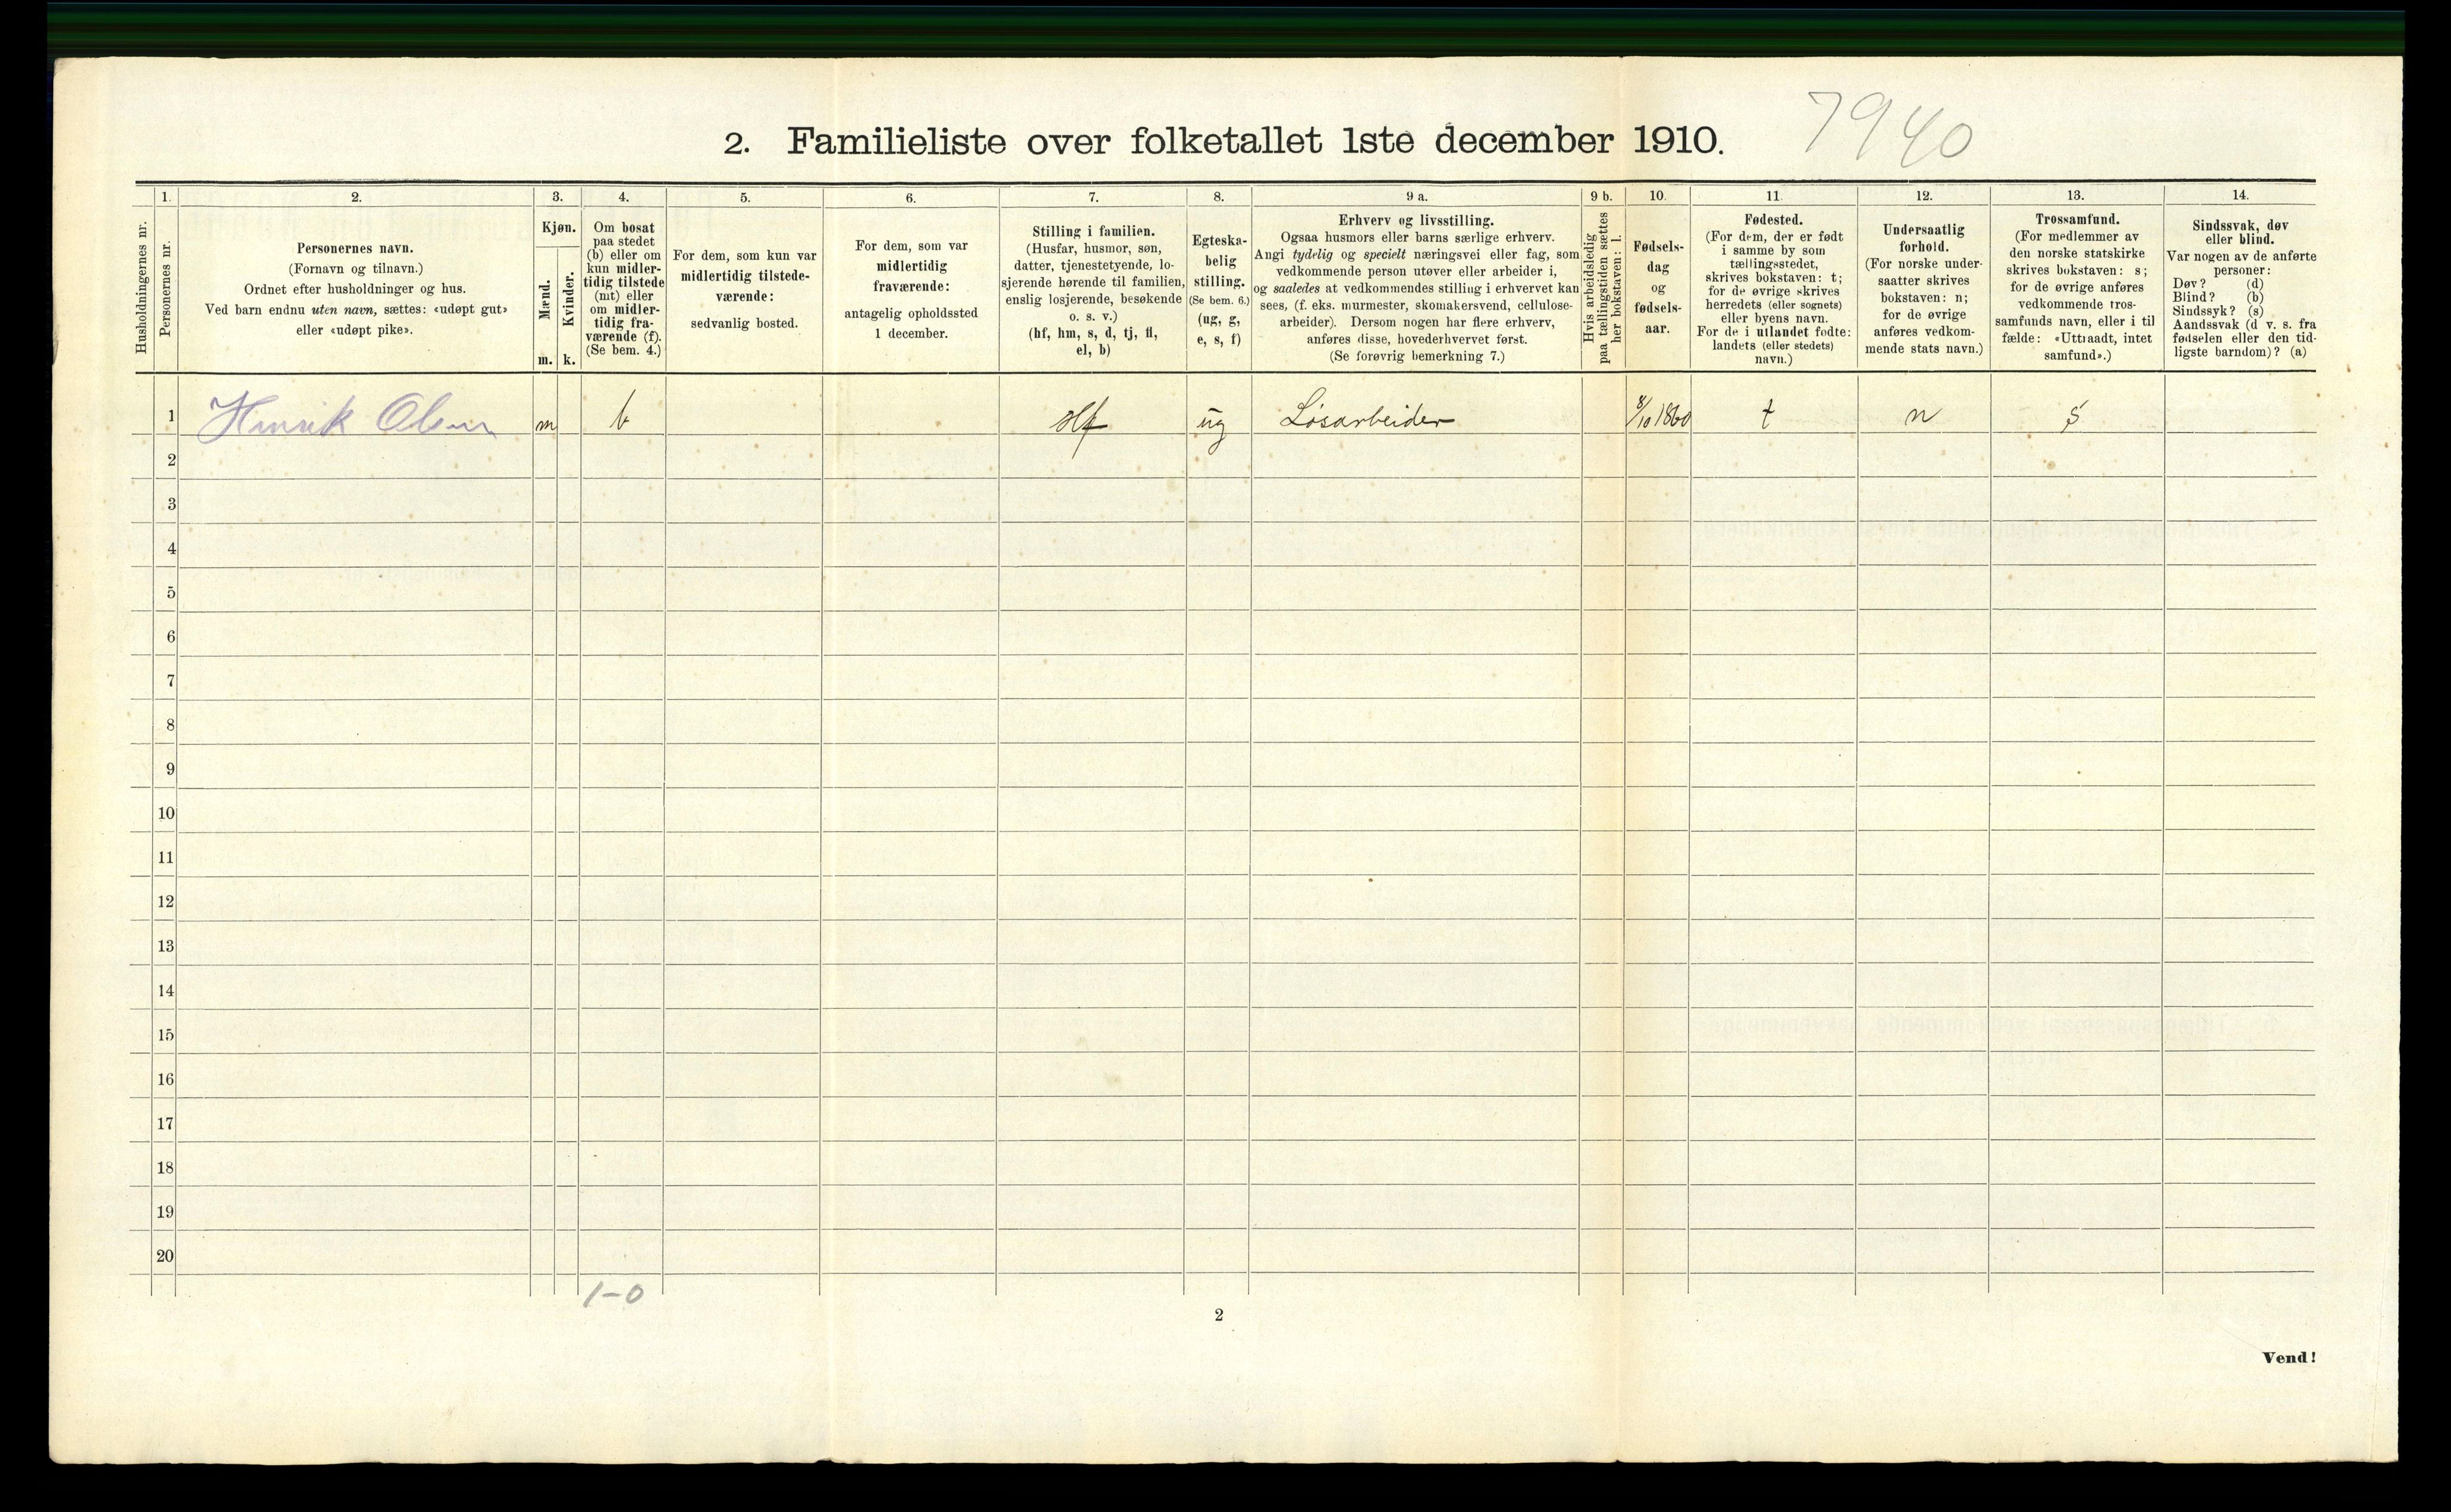 7940
2. Familieliste over folketallet 1ste december 1910.
Husholdningernes nr.
1.
Personernes nr.
2.
Personernes navn.
(Fornavn og tilnavn.)
Ordnet efter husholdninger og hus.
Ved barn endnu uten navn, sættes: «udøpt gut»
eller «udøpt pike».
3.
Kjøn.
Mænd.
m.
Kvinder.
k.
4.
Om bosat
paa stedet
(b) eller om
kun midler-
tidig tilstede
(mt) eller
om midler-
tidig fra-
værende (f).
(Se bem. 4.)
5.
For dem, som kun var
midlertidig tilstede-
værende:
sedvanlig bosted.
6.
For dem, som var
midlertidig
fraværende:
antagelig opholdssted
1 december.
7.
Stilling i familien.
(Husfar, husmor, søn,
datter, tjenestetyende, lo-
sjerende hørende til familien,
enslig losjerende, besøkende
o. s. v.)
(hf, hm, s, d, tj, fl,
el, b)
8.
Egteska-
belig
stilling.
(Se bem. 6.)
(ug, g,
e, s, f)
9 a.
Erhverv og livsstilling.
Ogsaa husmors eller barns særlige erhverv.
Angi tydelig og specielt næringsvei eller fag, som
vedkommende person utøver eller arbeider i,
og saaledes at vedkommendes stilling i erhvervet kan
sees, (f. eks. murmester, skomakersvend, cellulose-
arbeider). Dersom nogen har flere erhverv,
anføres disse, hovederhvervet først.
(Se forøvrig bemerkning 7.)
9 b.
Hvis arbeidsledig
paa tællingstiden sættes
her bokstaven: l.
10.
Fødsels-
dag
og
fødsels-
aar.
11.
Fødested.
(For dem, der er født
i samme by som
tællingsstedet,
skrives bokstaven: t;
for de øvrige skrives
herredets (eller sognets)
eller byens navn.
For de i utlandet fødte:
landets (eller stedets)
navn.)
12.
Undersaatlig
forhold.
(For norske under-
saatter skrives
bokstaven: n;
for de øvrige
anføres vedkom-
mende stats navn.)
13.
Trossamfund.
(For medlemmer av
den norske statskirke
skrives bokstaven: s;
for de øvrige anføres
vedkommende tros-
samfunds navn, eller i til
fælde: «Uttraadt, intet
samfund».)
14.
Sindssvak, døv
eller blind.
Var nogen av de anførte
personer:
Døv? (d)
Blind? (b)
Sindssyk? (s)
Aandssvak (d v. s. fra
fødselen eller den tid-
ligste barndom)? (a)
1 Henrik Olsen m b Hf ug Løsarbeider 8/10 1860 t n s
2
3
4
5
6
7
8
9
10
11
12
13
14
15
16
17
18
19
20
1-0
2
Vend!